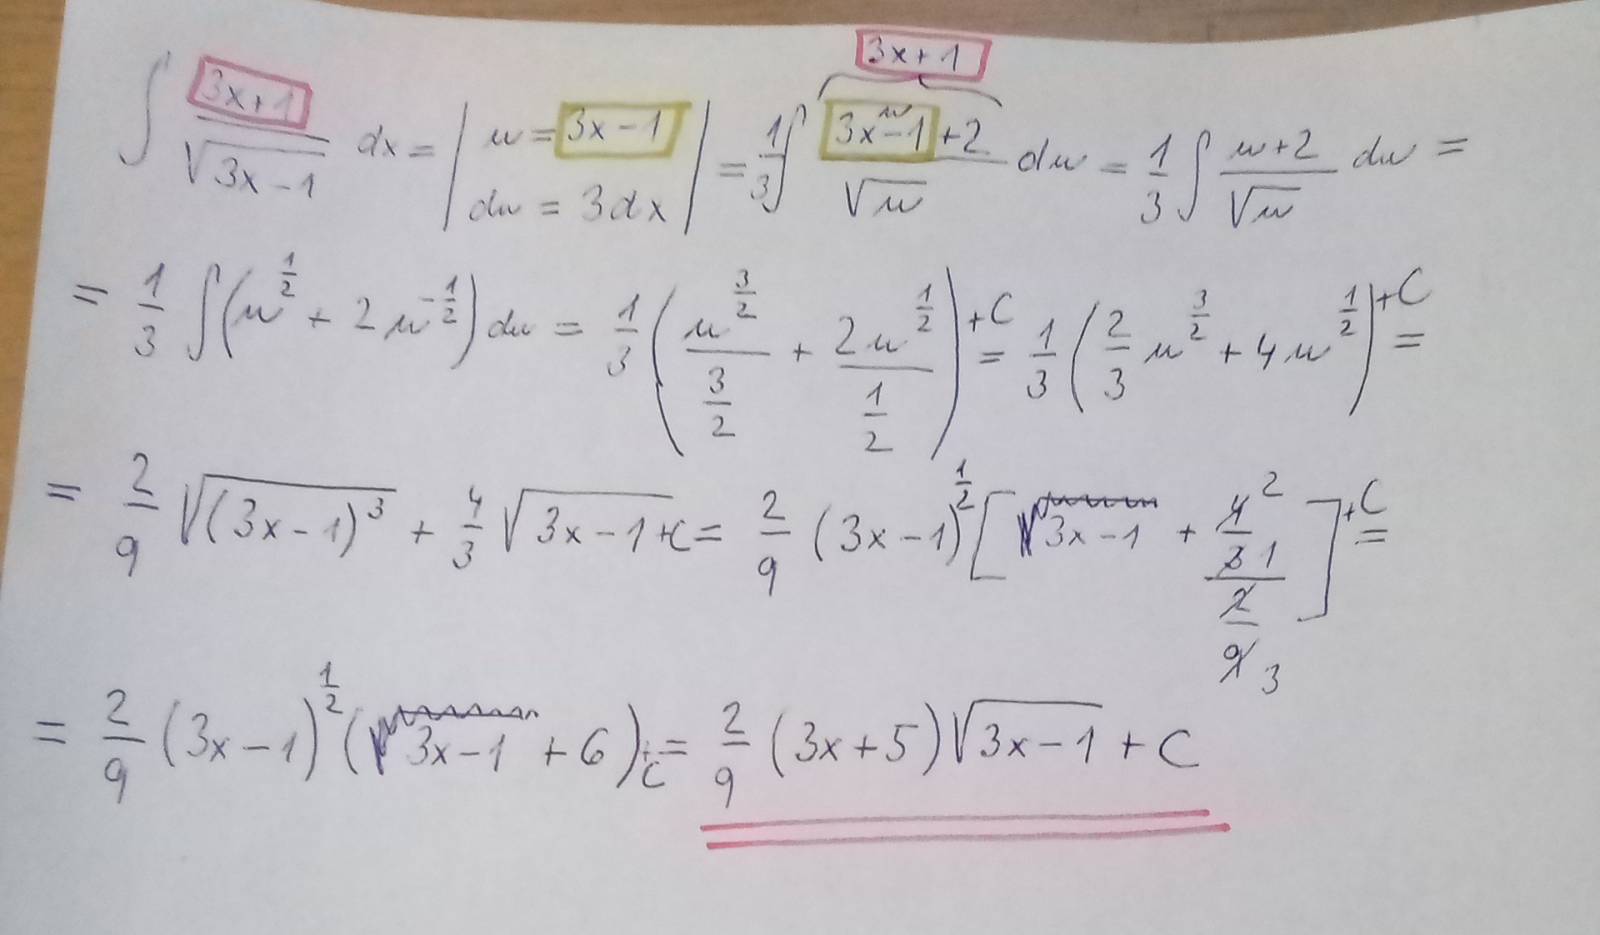 3x+1
∫ (3x+1)/√(3x-1) dx = | u = 3x-1, du = 3dx | = 1/3 ∫ (3x-1+2)/√u du = 1/3 ∫ (u+2)/√u du =
= 1/3 ∫ (u^(1/2) + 2u^(-1/2)) du = 1/3 (u^(3/2)/(3/2) + 2u^(1/2)/(1/2)) + C = 1/3 (2/3 u^(3/2) + 4u^(1/2)) + C =
= 2/9 √((3x-1)^3) + 4/3 √(3x-1) + C = 2/9 (3x-1)^(1/2) [3x-1 + (4/3)/(2/9)] + C =
= 2/9 (3x-1)^(1/2) (3x-1 + 6) + C = 2/9 (3x+5) √(3x-1) + C